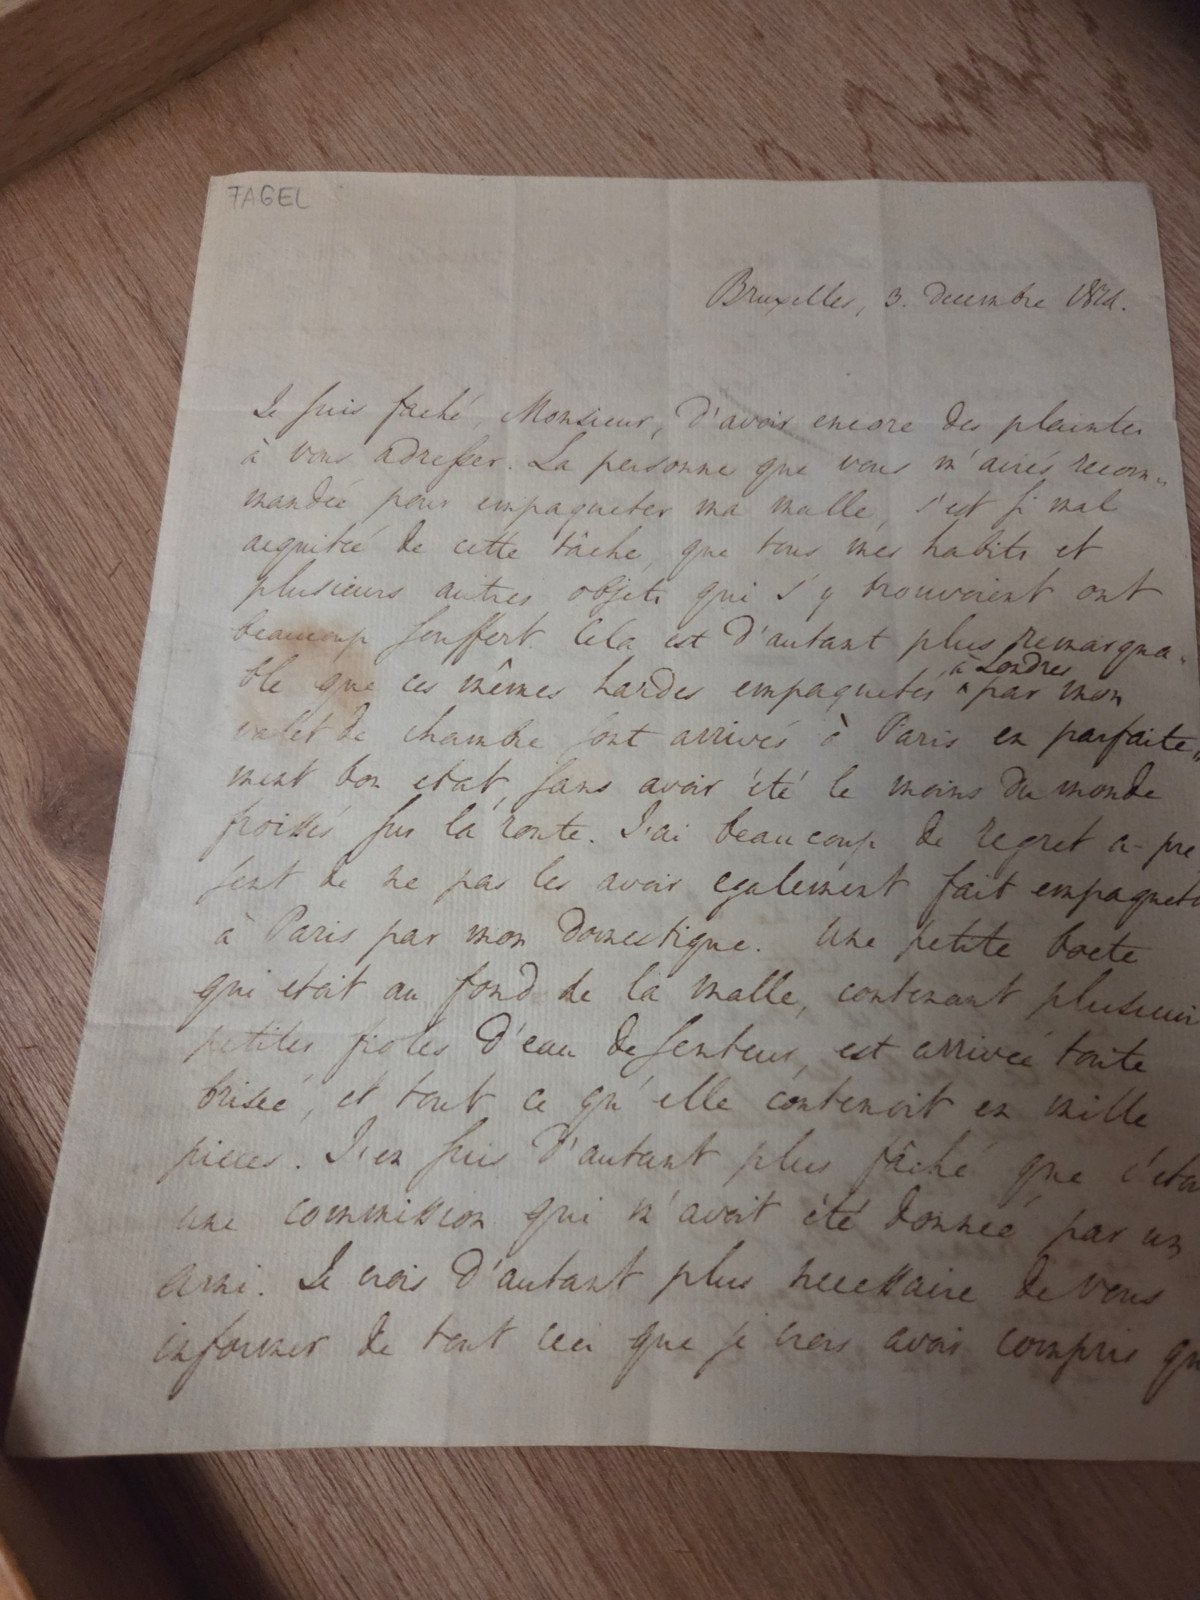 FAGEL
Bruxelles, 3. Decembre
Je suis faché, Monsieur, d'avoir encore des plaintes
à vous adresser. La personne que vous m'aviés recom„
mandée pour empaqueter ma malle, s'est si mal
acquitée de cette tâche, que tous mes habits et
plusieurs autres objets qui s'y trouvoient ont
beaucoup souffert. Cela est d'autant plus remarqua„
ble que ces mêmes hardes empaquetés ^ à Londres par mon
valet de chambre sont arrivés à Paris en parfaite„
ment bon etat, sans avoir été le moins du monde
froissés sur la route. J'ai beaucoup de regret a-pre
sent de ne pas les avoir egalement fait empaquete
à Paris par mon domestique. Une petite boete
qui etoit au fond de la malle, contenant plusieur
petites fioles d'eau de senteur, est arrivée toute
brisée, et tout ce qu'elle contenoit en mille
pieces. J'en suis d'autant plus fâché que c'etoi
une commission qui m'avoit été donnée par un
ami. Je crois d'autant plus necessaire de vous
informer de tout ceci que je crois avoir compris qu